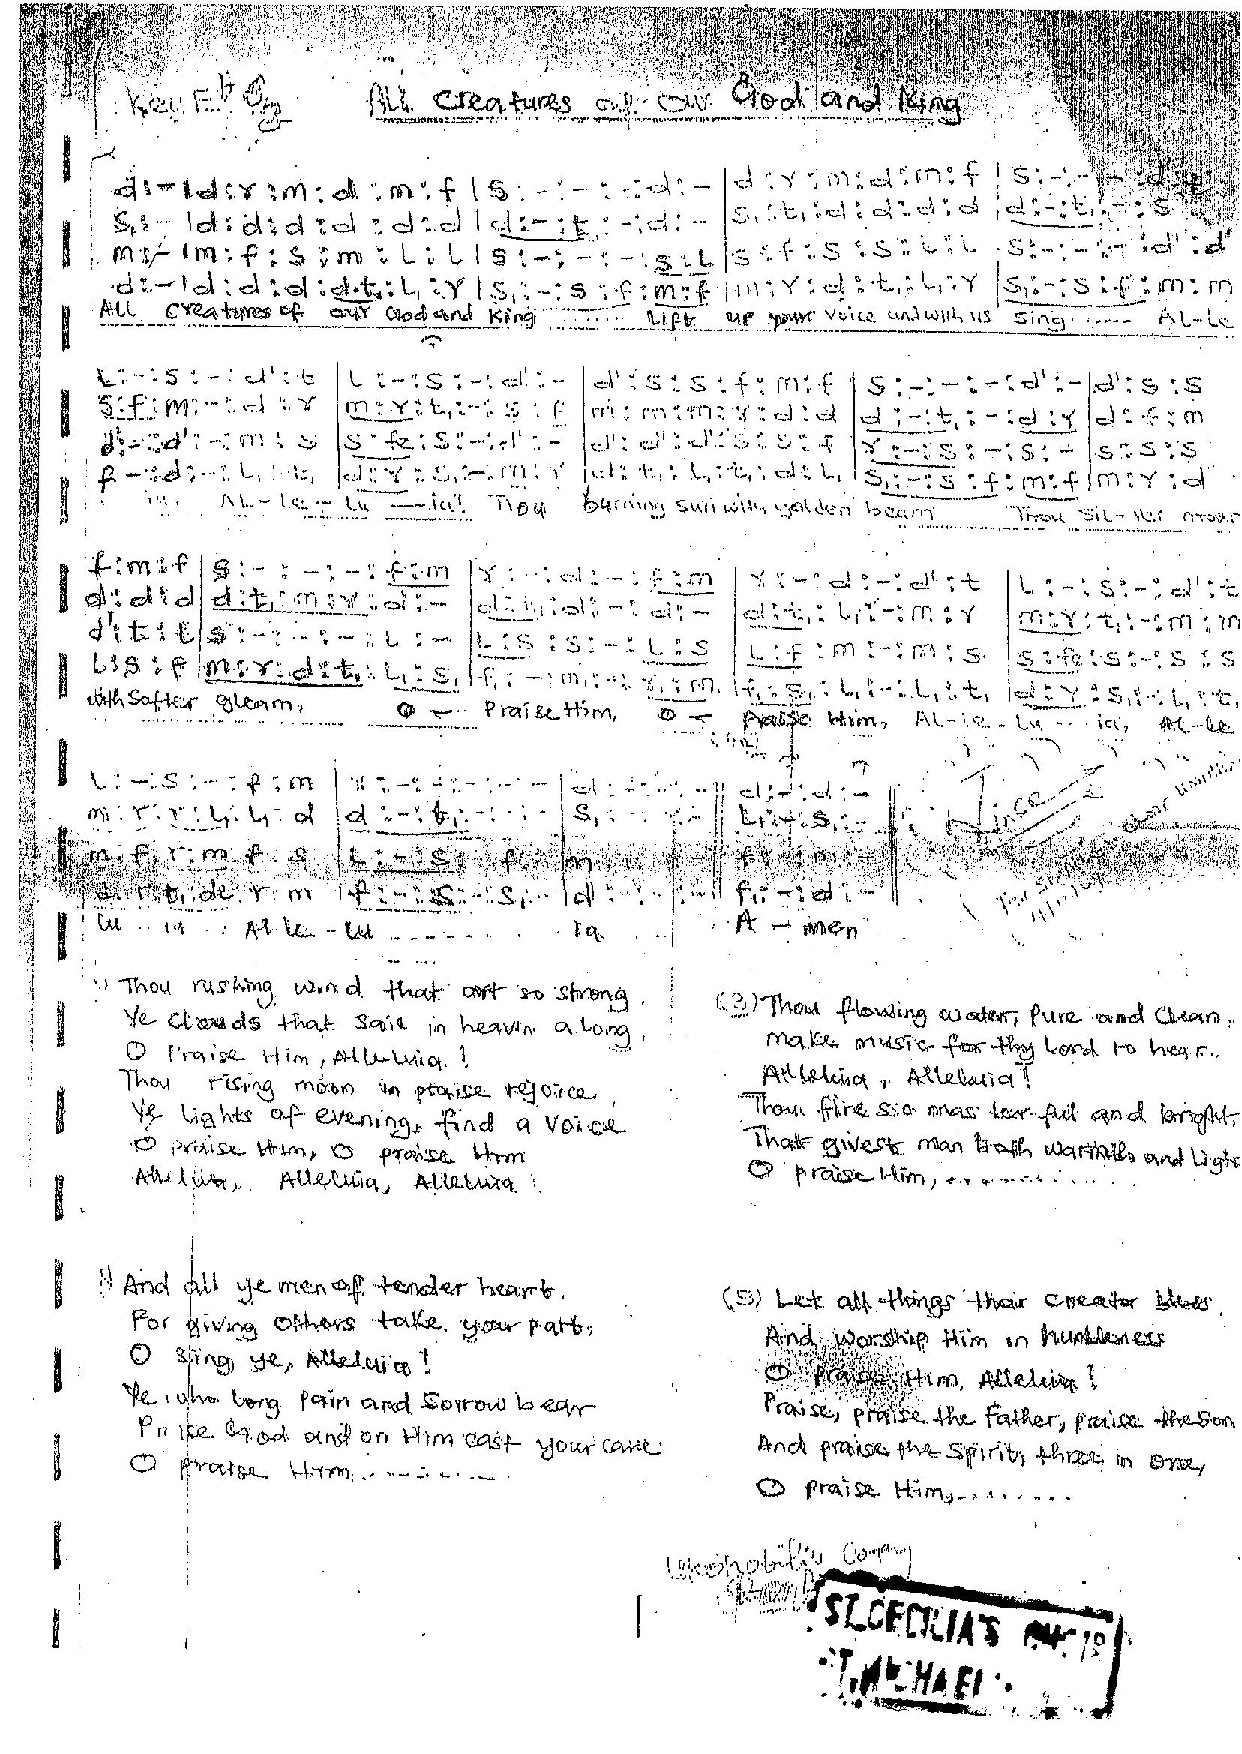 Key Eb
ALL Creatures of our God and King
d:-|d:r:m:d:m:f|S:-:-:-:d:-|d:r:m:d:m:f|S:-:-
S,:-|d:d:d:d:d:d|d:-:t,:-:d:-|S,:t,:d:d:d:d|d:-:t,:-:S
m:-|m:f:s:m:L:L|S:-:-:-:s:L|s:f:s:s:L:L|S:-:-:-:d':d'
d:-|d:d:d:dt,:L,:r|S,:-:s:f:m:f|m:r:d:t,:L,:r|S,:-:s:f:m:m
ALL Creatures of our God and King ...... Lift up your voice and with us Sing ...... AL-Le
L:-:S:-:d':t|L:-:S:-:d':-|d':s:s:f:m:f|S:-:-:-:d':-|d':s:s
S:f:m:-:d:r|m:r:t,:-:s:f|m:m:m:r:d:d|d:-:t,:-:d:r|d:f:m
d':-:d':-:m:s|s:fe:s:-:d':-|d':d':d':s:s:f|r:-:s:-:s:-|s:s:s
f:-:d:-:L,:t,|d:r:s,:-:m:r|d:t,:L,:t,:d:L,|S,:-:s:f:m:f|m:r:d
ia. AL-Le-Lu-ia! Thou burning sun with golden beam Thou Sil-ver moon
f:m:f|S:-:-:-:f:m|r:-:d:-:f:m|r:-:d:-:d':t|L:-:S:-:d':t
d:d:d|d:t,:m:r:d:-|d:t,:d:-:d:-|d:t,:L,:-:m:r|m:r:t,:-:m:m
d':t:t|s:-:-:-:L:-|L:s:s:-:L:s|L:f:m:-:m:s|s:fe:s:-:s:s
L:s:f|m:r:d:t,:L,:s,|f,:-:m,:-:f,:m,|f,:s,:L,:-:L,:t,|d:r:s,:-:L,:t,
with Softer gleam, O - Praise Him, O - Praise Him, AL-le-Lu-ia, AL-le
L:-:S:-:f:m|r:-:-:-:-:-|d:-:-:-|d:-:d:-
m:r:r:L,:L,:d|d:-:t,:-:-:-|S,:-:-:-|L,:-:S,:-
m:f:r:m:f:s|L:-:S:f|m|f:-:m:-
d:r:t,:de:r:m|f:-:s:s,|d:-:-:-|f,:-:d:-
Lu-ia AL le-Lu ........ ia A-men
Thou rushing wind that art so strong
Ye clouds that sail in heaven along,
O Praise Him, Alleluia!
Thou rising moon in praise rejoice,
Ye Lights of evening, find a voice
O praise Him, O praise Him
Alleluia, Alleluia, Alleluia!
(3) Thou flowing water, Pure and Clear,
make music for thy Lord to hear.
Alleluia, Alleluia!
Thou fire so mas ter ful and bright,
That givest man both warmth and Light
O praise Him, ..........
And all ye men of tender heart.
For giving others take your part,
O Sing, ye, Alleluia!
Ye who Long Pain and Sorrow bear
Praise God and on Him cast your care
O praise Him, ..........
(5) Let all things their creator bless
And, worship Him in humbleness
O praise Him, Alleluia!
Praise, praise the Father, praise the Son
And praise the Spirit, three in one,
O praise Him, ........
Company
ST. CECILIA'S
ST. MICHAEL